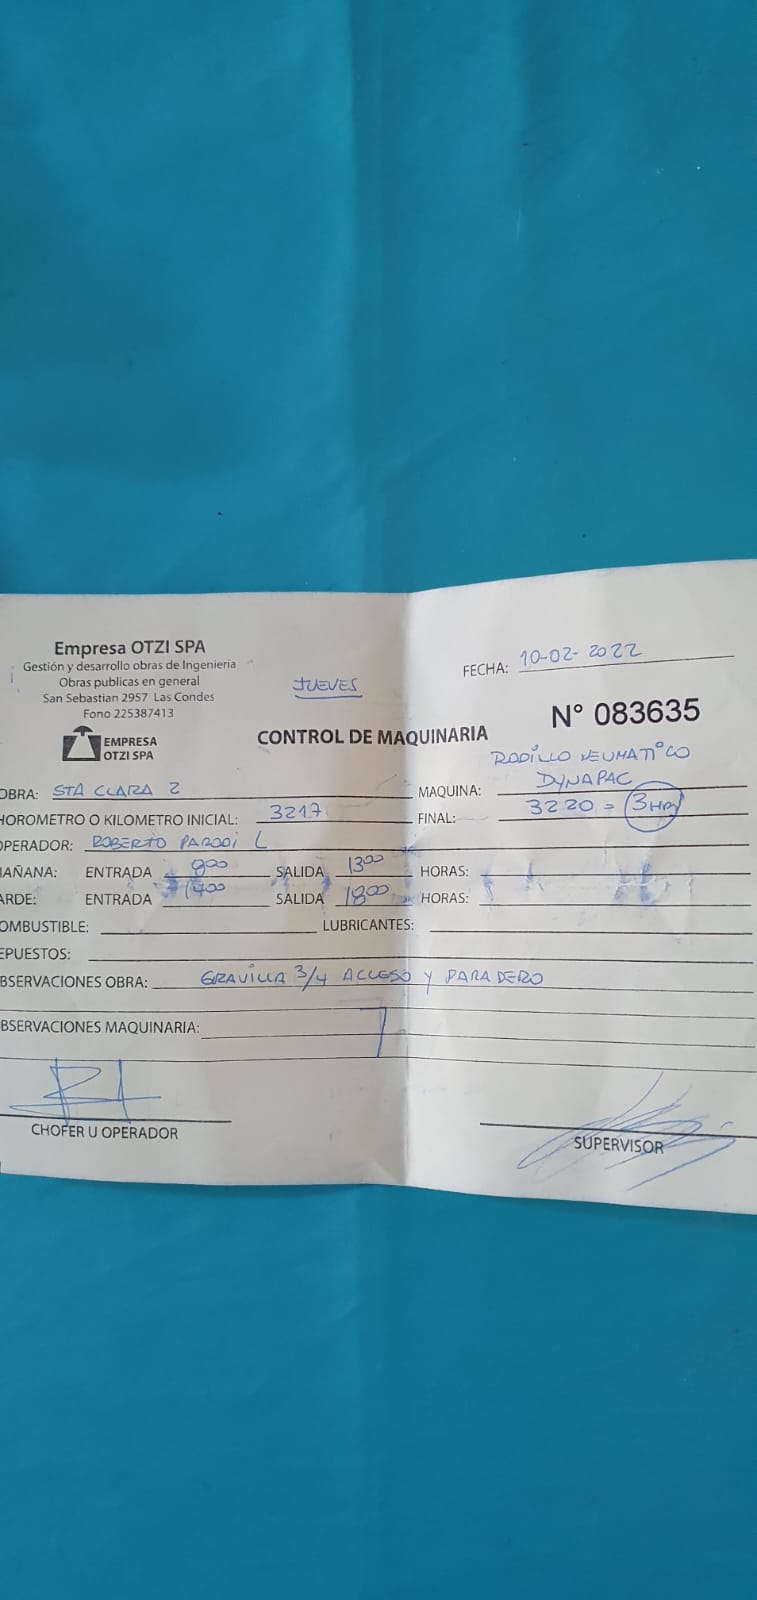 Empresa OTZI SPA
Gestión y desarrollo obras de Ingenieria
Obras publicas en general
San Sebastian 2957 Las Condes
Fono 225387413
EMPRESA
OTZI SPA
JUEVES
FECHA: 10-02-2022
CONTROL DE MAQUINARIA
N° 083635
OBRA: STA CLARA 2
MAQUINA: RODILLO NEUMATICO
DYNAPAC
HOROMETRO O KILOMETRO INICIAL: 3217
FINAL: 3220 = 3 HRS
OPERADOR: ROBERTO PARODI L
MAÑANA: ENTRADA 800 SALIDA 1300 HORAS:
TARDE: ENTRADA 1400 SALIDA 1800 HORAS:
COMBUSTIBLE: LUBRICANTES:
REPUESTOS:
OBSERVACIONES OBRA: GRAVILLA 3/4 ACCESO Y PARADERO
OBSERVACIONES MAQUINARIA:
CHOFER U OPERADOR
SUPERVISOR